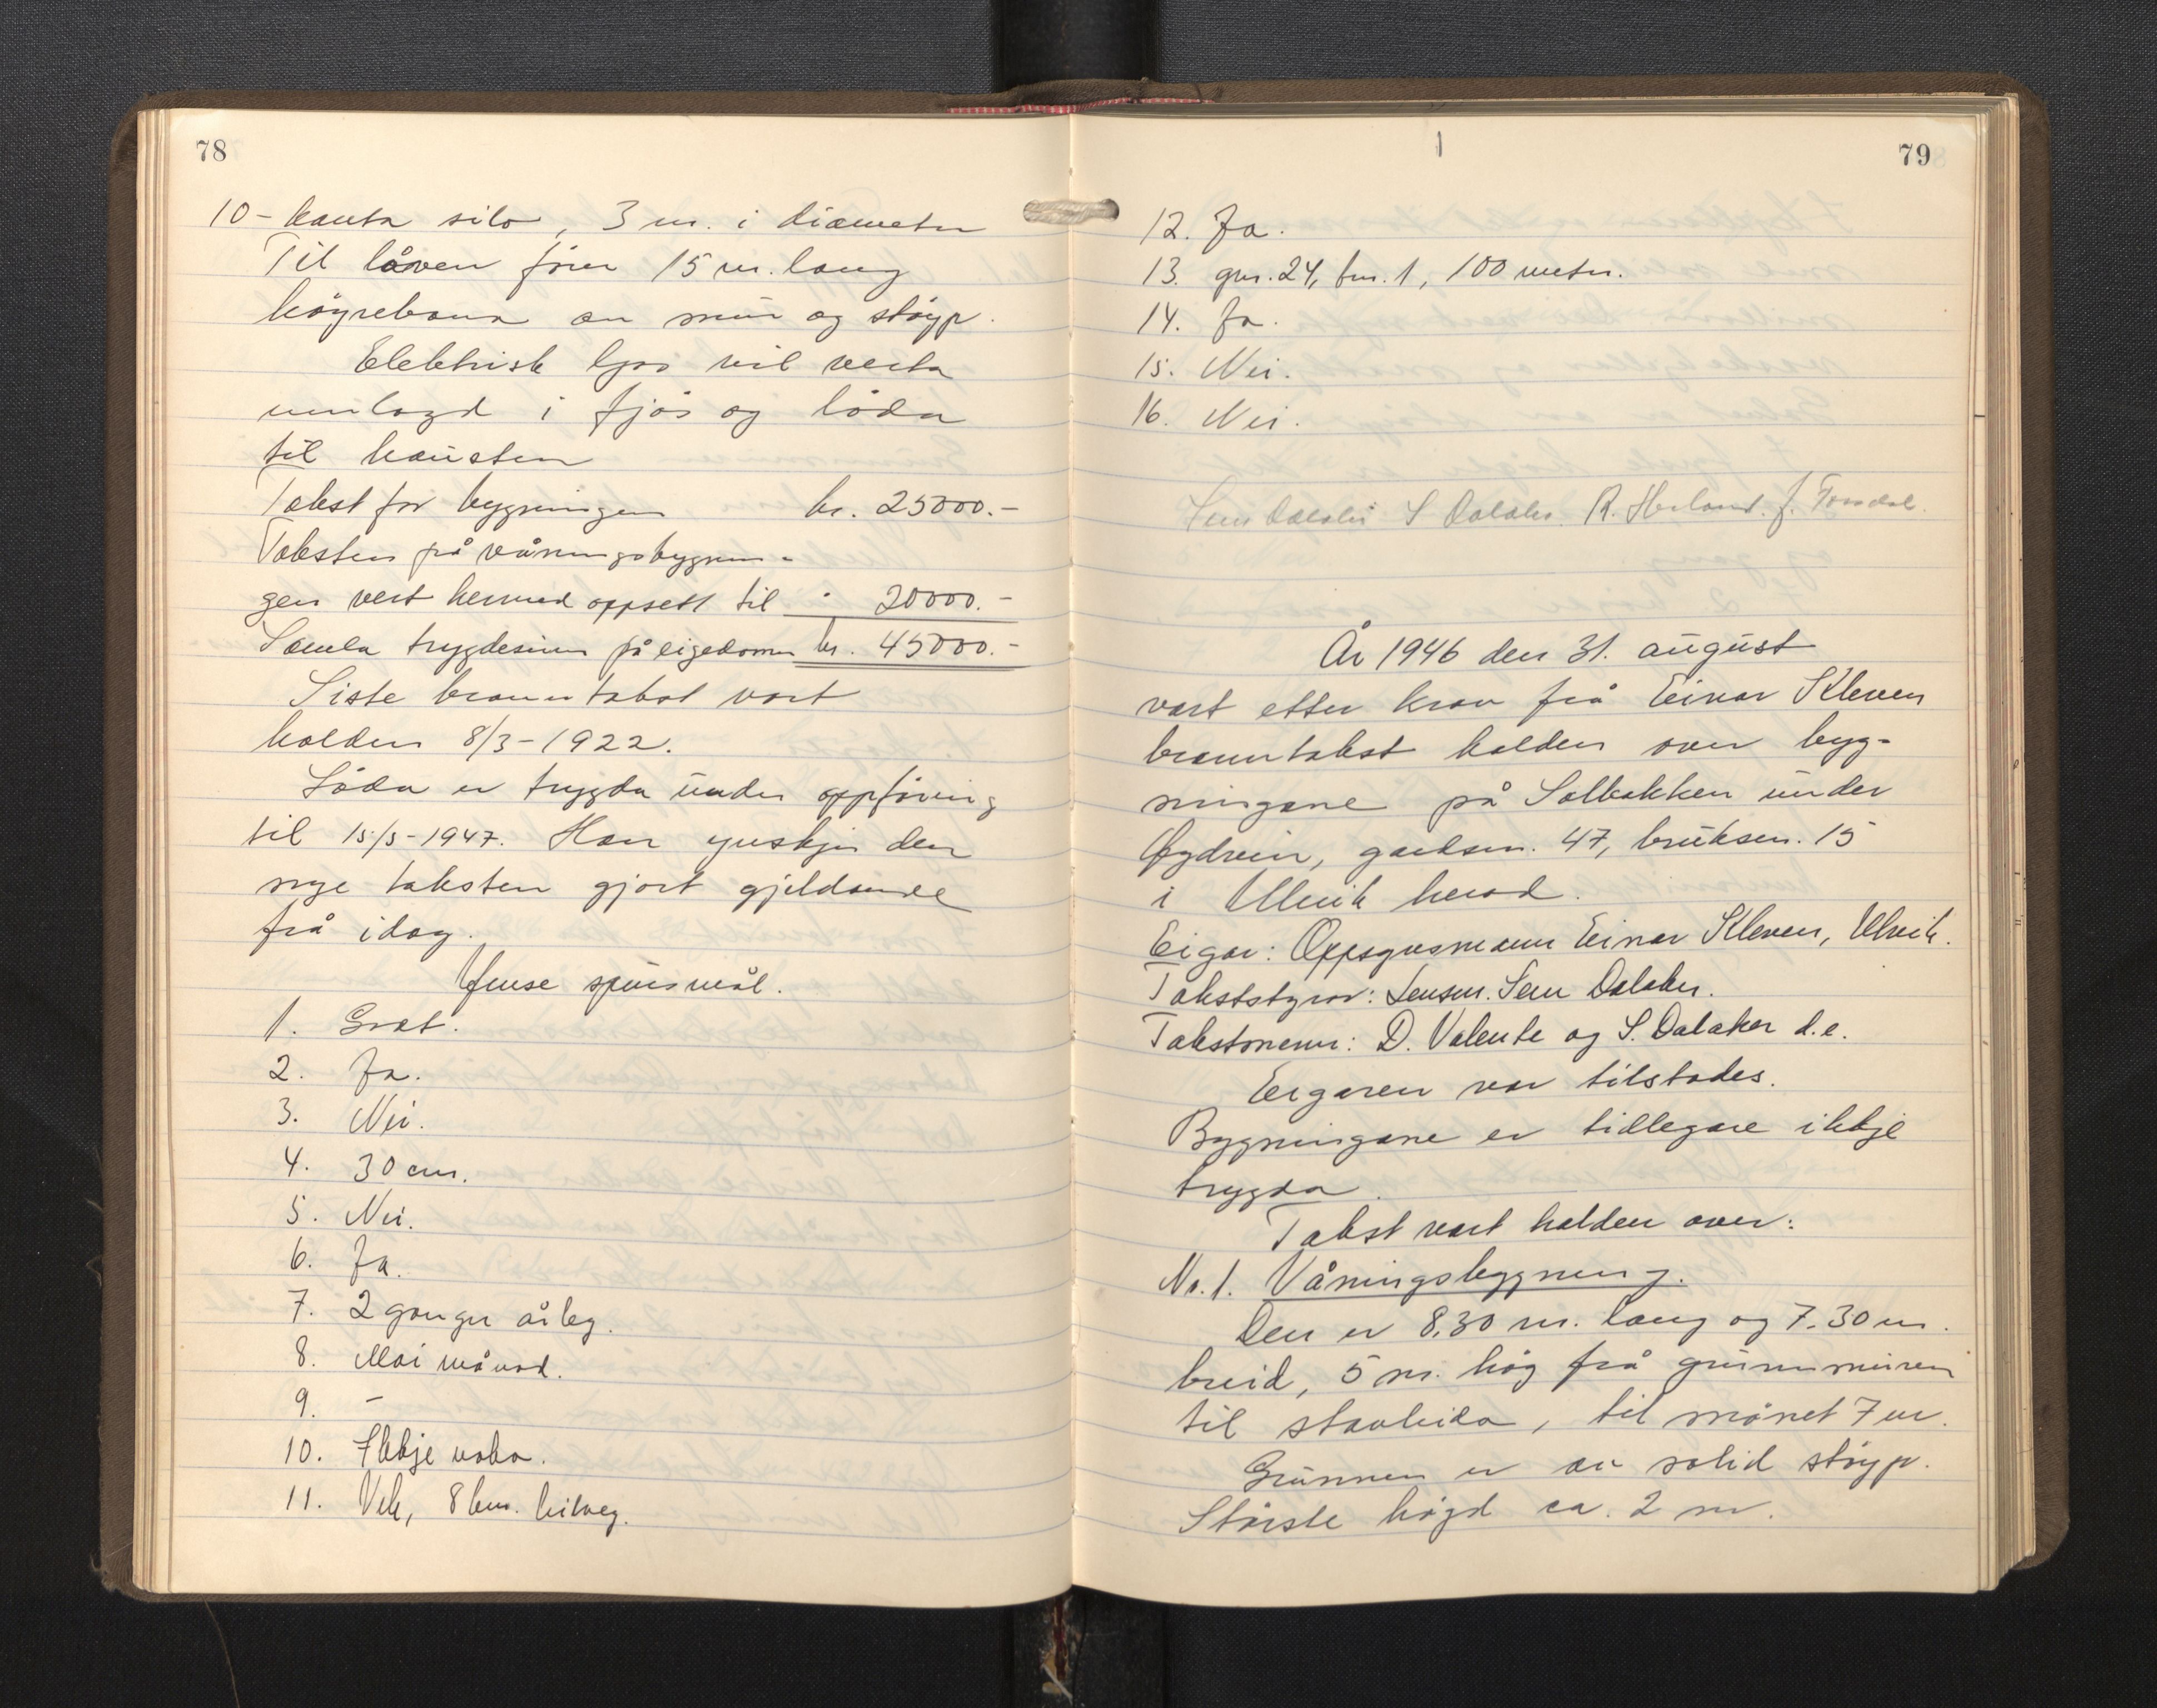 78
10-kanta silo, 3 m. i diameter
Til låven förer 15 m. lang
köyrebana av mur og stöyp.
Elektrisk ljos vil verta
innlagd i fjös og löda
til hausten
Takst for bygningen kr. 25000.-
Taksten på våningsbygnin-
gen vert hermed oppsett til " 20000.-
Samla trygdesum på eigedomen kr. 45000.-
Siste branntakst vart
halden 8/3-1922.
Löda er trygda under oppföring
til 15/5-1947. Han ynskjer den
nye taksten gjort gjeldande
frå idag.
Ymse spursmål.
1. Grat.
2. Ja.
3. Nei.
4. 30 cm.
5. Nei.
6. Ja.
7. 2 gonger årleg.
8. Mai månad.
9. -
10. Ikkje vaba.
11. Vik, 8 km. bilveg.
79
12. Ja.
13. gnr. 24, bnr. 1, 100 meter.
14. Ja.
15. Nei.
16. Nei.
Sem Dalaker S Dalaker. R. Herland. J.
År 1946 den 31. august
vart etter krav frå Einar Kleven
branntakst halden over byg-
ningane på Solbakken under
Öydvin, gardsnr. 47, bruksnr. 15
i Ulvik herad.
Eigar: Oppsynsmann Einar Kleven, Ulvik.
Takststyrar: Lensm. Sem Dalaker.
Takstmenn: D. Valente og S. Dalaker d.e.
Eigaren var tilstades.
Bygningane er tidlegare ikkje
trygda.
Takst vart halden over:
No. 1. Våningsbygning.
Den er 8,30 m. lang og 7.30 m.
breid, 5 m. hög frå grunnmuren
til stavleida, til mönet 7 m.
Grunnen er av solid stöyp.
Störste högd ca. 2 m.